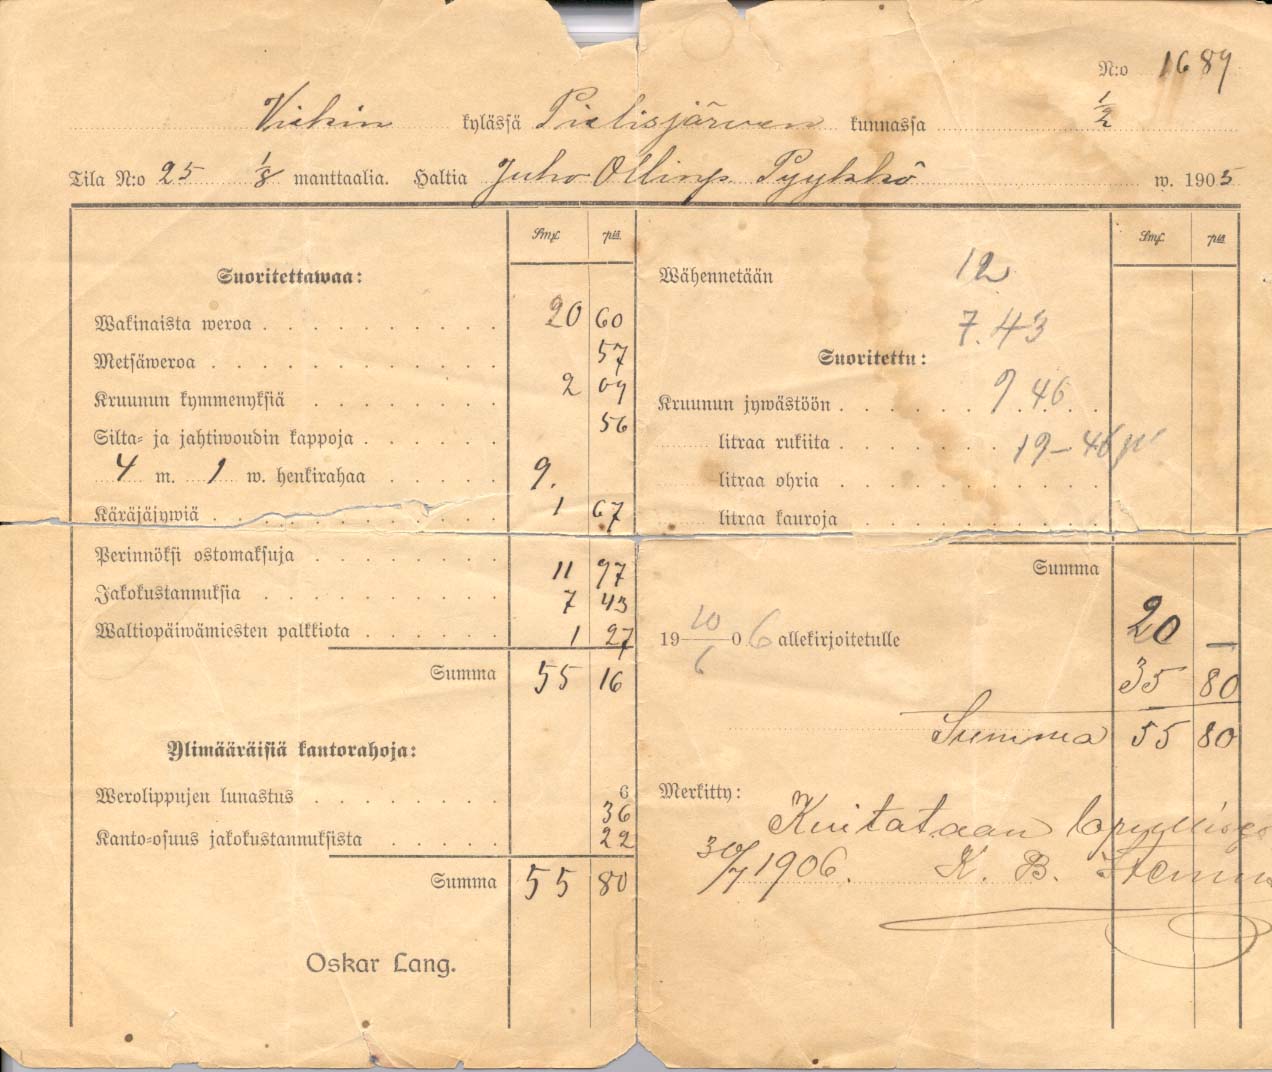 N:o 1689
Viekin kylässä Pielisjärven kunnassa 1/2
Tila N:o 25 1/8 manttaalia. Haltia Juho Ollinp. Pyykkö w. 1905
Smk. piä
Suoritettawaa:
Wakinaista weroa . . . . . . . . . 20 60
Metsäweroa . . . . . . . . . . . 57
Kruunun kymmenyksiä . . . . . . . 2 09
Silta= ja jahtiwoudin kappoja . . . . . 56
4 m. 1 w. henkirahaa . . . . . 9.
Käräjäjywiä . . . . . . . . . . . 1 67
Perinnöksi ostomaksuja . . . . . . . 11 97
Jakokustannuksia . . . . . . . . . 7 43
Waltiopäiwämiesten palkkiota . . . . . 1 27
Summa 55 16
Ylimääräisiä kantorahoja:
Werolippujen lunastus . . . . . . . 6
36
Kanto=osuus jakokustannuksista . . . . . 22
Summa 55 80
Oskar Lang.
Smk. piä
Wähennetään 12
7.43
Suoritettu:
Kruunun jywästöön . . . . 9.46
litraa rukiita . . . . . . 19-46 pi
litraa ohria . . . . . . . . .
litraa kauroja . . . . . . . .
Summa
19 10/6 06 allekirjoitetulle 20 —
35 80
Summa 55 80
Merkitty:
Kuitataan
30/7 1906. K. B.